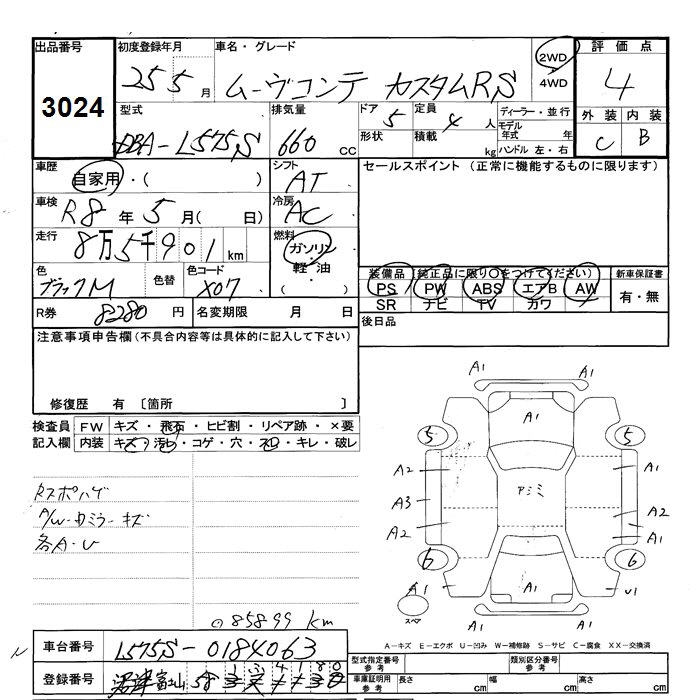 出品番号 初度登録年月 車名・グレード 2WD 4WD 評価点
3024 25 5月 ムーヴコンテ カスタムRS 4
型式 排気量 ドア 5 定員 4人 ディーラー・並行 外装 内装
DBA-L575S 660cc 形状 積載 kg モデル年式 年 C B
ハンドル 左・右
車歴 自家用・( ) シフト AT セールスポイント (正常に機能するものに限ります)
車検 R8年5月( 日) 冷房 AC
走行 8万5千901km 燃料 ガソリン・軽油・( )
色 ブラックM 色替 色コード X07
装備品 (純正品に限り○をつけてください) 新車保証書
PS PW ABS エアB AW 有・無
SR ナビ TV カワ
R券 8280円 名変期限 月 日 後日品
注意事項申告欄(不具合内容等は具体的に記入して下さい)
修復歴 有 [箇所 ]
検査員記入欄 FW キズ・飛石・ヒビ割・リペア跡・×要
内装 キズ・汚れ・コゲ・穴・スレ・キレ・破レ
A1 A1
A1
5 5
A2 A1
アミミ
A3 A2
A2 A1
6 6
A1 A1 U1
スペア
A1 A1
Rスポハゲ
A/W・Dミラーキズ
各A・U
85899 km
A-キズ E-エクボ U-凹み W-補修跡 S-サビ C-腐食 XX-交換済
車台番号 L575S-0184063
型式指定番号 参考 類別区分番号 参考
登録番号 富士山 58
車庫証明用 参考 長さ cm 幅 cm 高さ cm